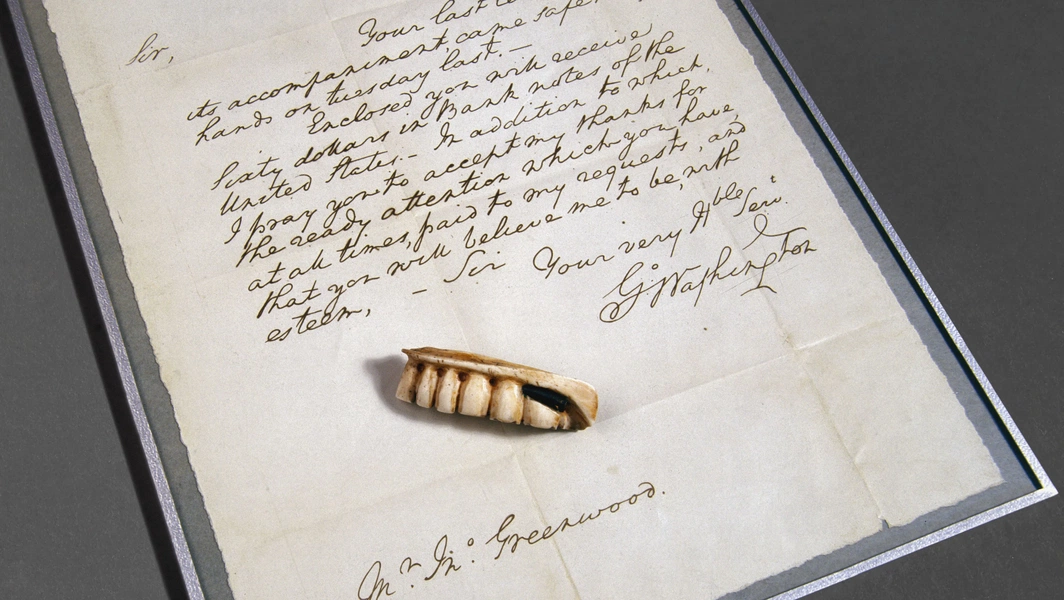 Sir,
Your last
its accompaniment, came safe
hands on tuesday last. —
Enclosed you will receive
Sixty dollars in Bank notes of the
United States. — In addition to which,
I pray you to accept my thanks for
the ready attention which you have,
at all times, paid to my requests, and
that you will believe me to be, with
esteem, — Sir Your very Hble Serv.t
Go Washington
Mr. Jno Greenwood.